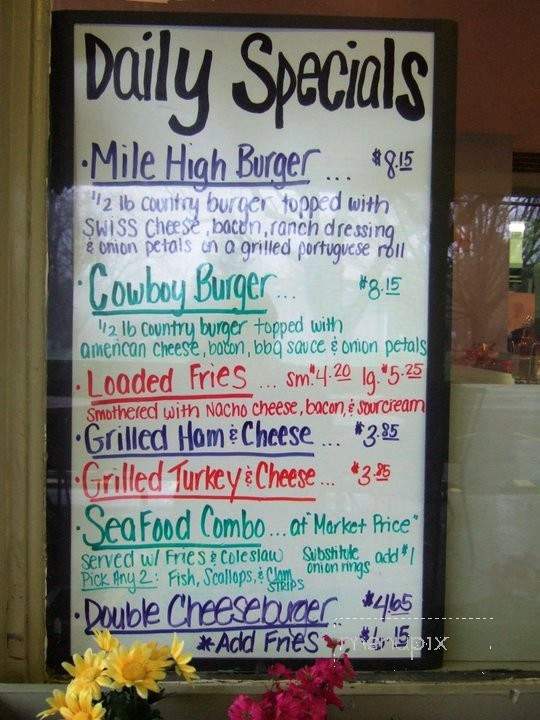 Daily Specials
• Mile High Burger ... $8.15
1/2 lb country burger topped with
Swiss cheese, bacon, ranch dressing
& onion petals on a grilled portuguese roll
• Cowboy Burger ... $8.15
1/2 lb country burger topped with
american cheese, bacon, bbq sauce & onion petals
• Loaded Fries ... sm. $4.20 lg. $5.25
smothered with Nacho cheese, bacon, & sour cream
• Grilled Ham & Cheese ... $3.85
• Grilled Turkey & Cheese ... $3.85
• SeaFood Combo ... at "Market Price"
served w/ Fries & Coleslaw Substitute onion rings add $1
Pick Any 2: Fish, Scallops, & Clam STRIPS
• Double Cheeseburger .. $4.65
*Add Fries
menupix